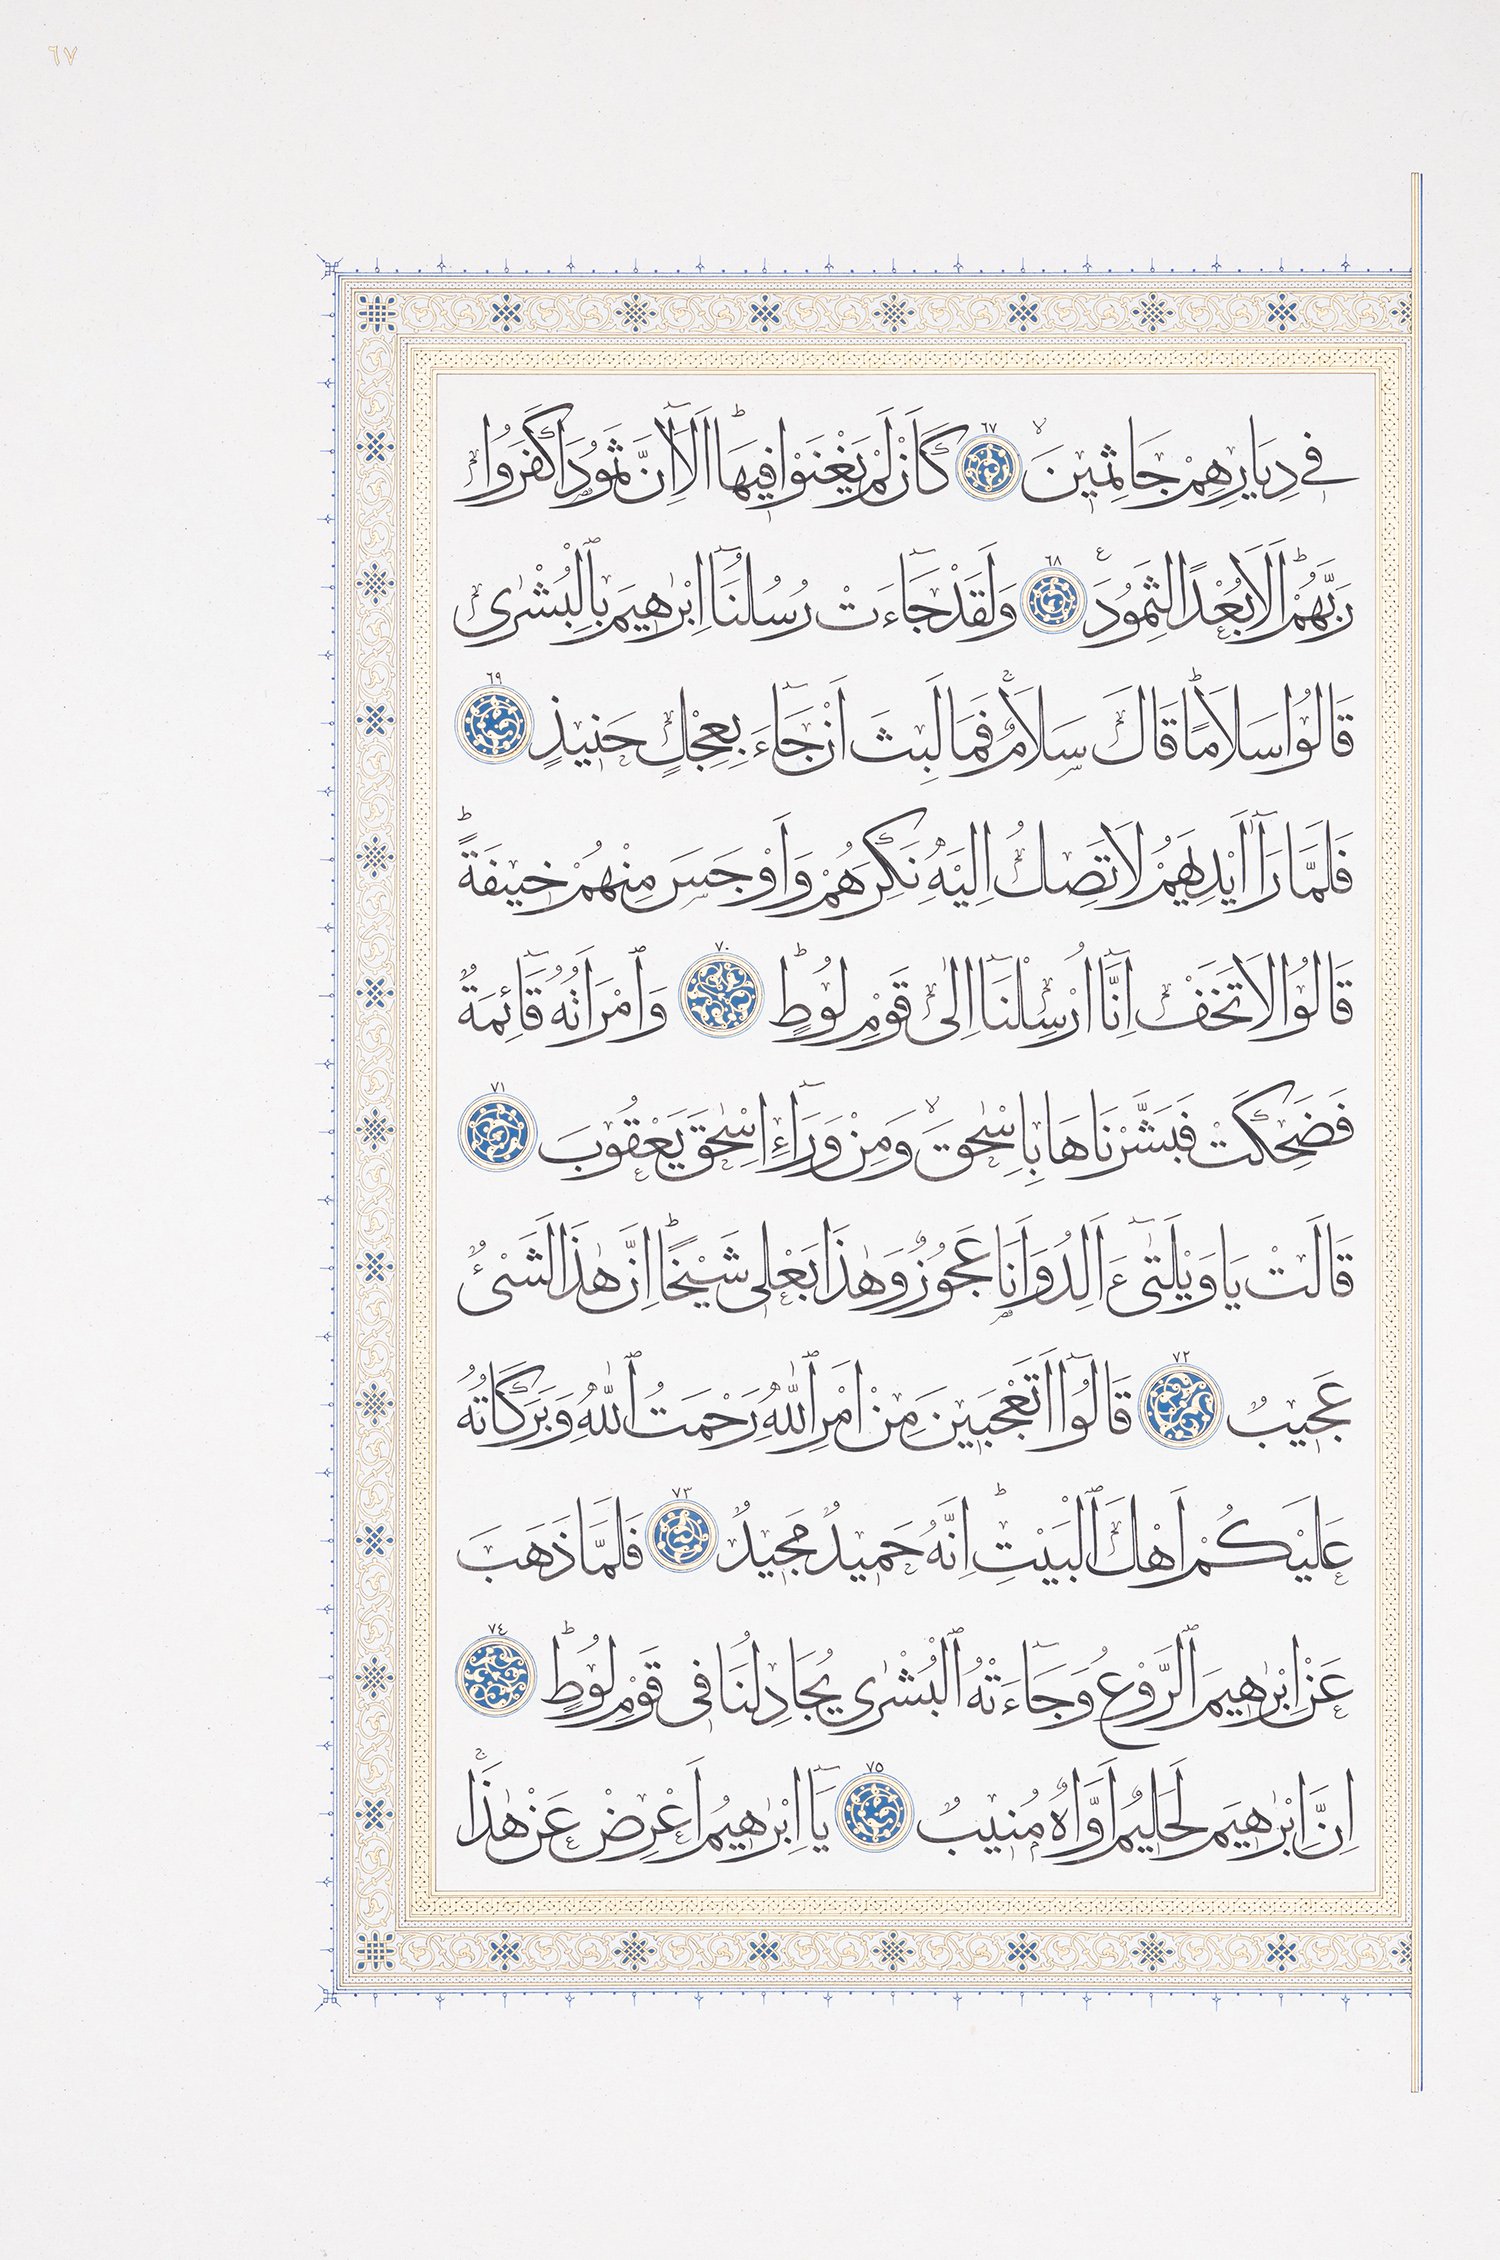 ٦٧
فِي دِيَارِهِمْ جَاثِمِينَۙ ٦٧ كَاَنْ لَمْ يَغْنَوْا فِيهَاۜ اَلَٓا اِنَّ ثَمُودَا۬ كَفَرُوا
رَبَّهُمْۜ اَلَا بُعْدًا لِثَمُودَ۟ ٦٨ وَلَقَدْ جَٓاءَتْ رُسُلُنَٓا اِبْرٰهِيمَ بِالْبُشْرٰى
قَالُوا سَلَامًاۜ قَالَ سَلَامٌ فَمَا لَبِثَ اَنْ جَٓاءَ بِعِجْلٍ حَنِيذٍ ٦٩
فَلَمَّا رَآٰ اَيْدِيَهُمْ لَا تَصِلُ اِلَيْهِ نَكِرَهُمْ وَاَوْجَسَ مِنْهُمْ خِيفَةًۜ
قَالُوا لَا تَخَفْ اِنَّٓا اُرْسِلْنَٓا اِلٰى قَوْمِ لُوطٍۜ ٧٠ وَامْرَاَتُهُ قَٓائِمَةٌ
فَضَحِكَتْ فَبَشَّرْنَاهَا بِاِسْحٰقَۙ وَمِنْ وَرَٓاءِ اِسْحٰقَ يَعْقُوبَ ٧١
قَالَتْ يَا وَيْلَتٰٓى ءَاَلِدُ وَاَنَا۬ عَجُوزٌ وَهٰذَا بَعْلِى شَيْخًاۜ اِنَّ هٰذَا لَشَىْءٌ
عَجِيبٌ ٧٢ قَالُٓوا اَتَعْجَبِينَ مِنْ اَمْرِ اللّٰهِ رَحْمَتُ اللّٰهِ وَبَرَكَاتُهُ
عَلَيْكُمْ اَهْلَ الْبَيْتِۜ اِنَّهُ حَمِيدٌ مَجِيدٌ ٧٣ فَلَمَّا ذَهَبَ
عَنْ اِبْرٰهِيمَ الرَّوْعُ وَجَٓاءَتْهُ الْبُشْرٰى يُجَادِلُنَا فِى قَوْمِ لُوطٍۜ ٧٤
اِنَّ اِبْرٰهِيمَ لَحَلِيمٌ اَوَّاهٌ مُنِيبٌ ٧٥ يَٓا اِبْرٰهِيمُ اَعْرِضْ عَنْ هٰذَاۚ